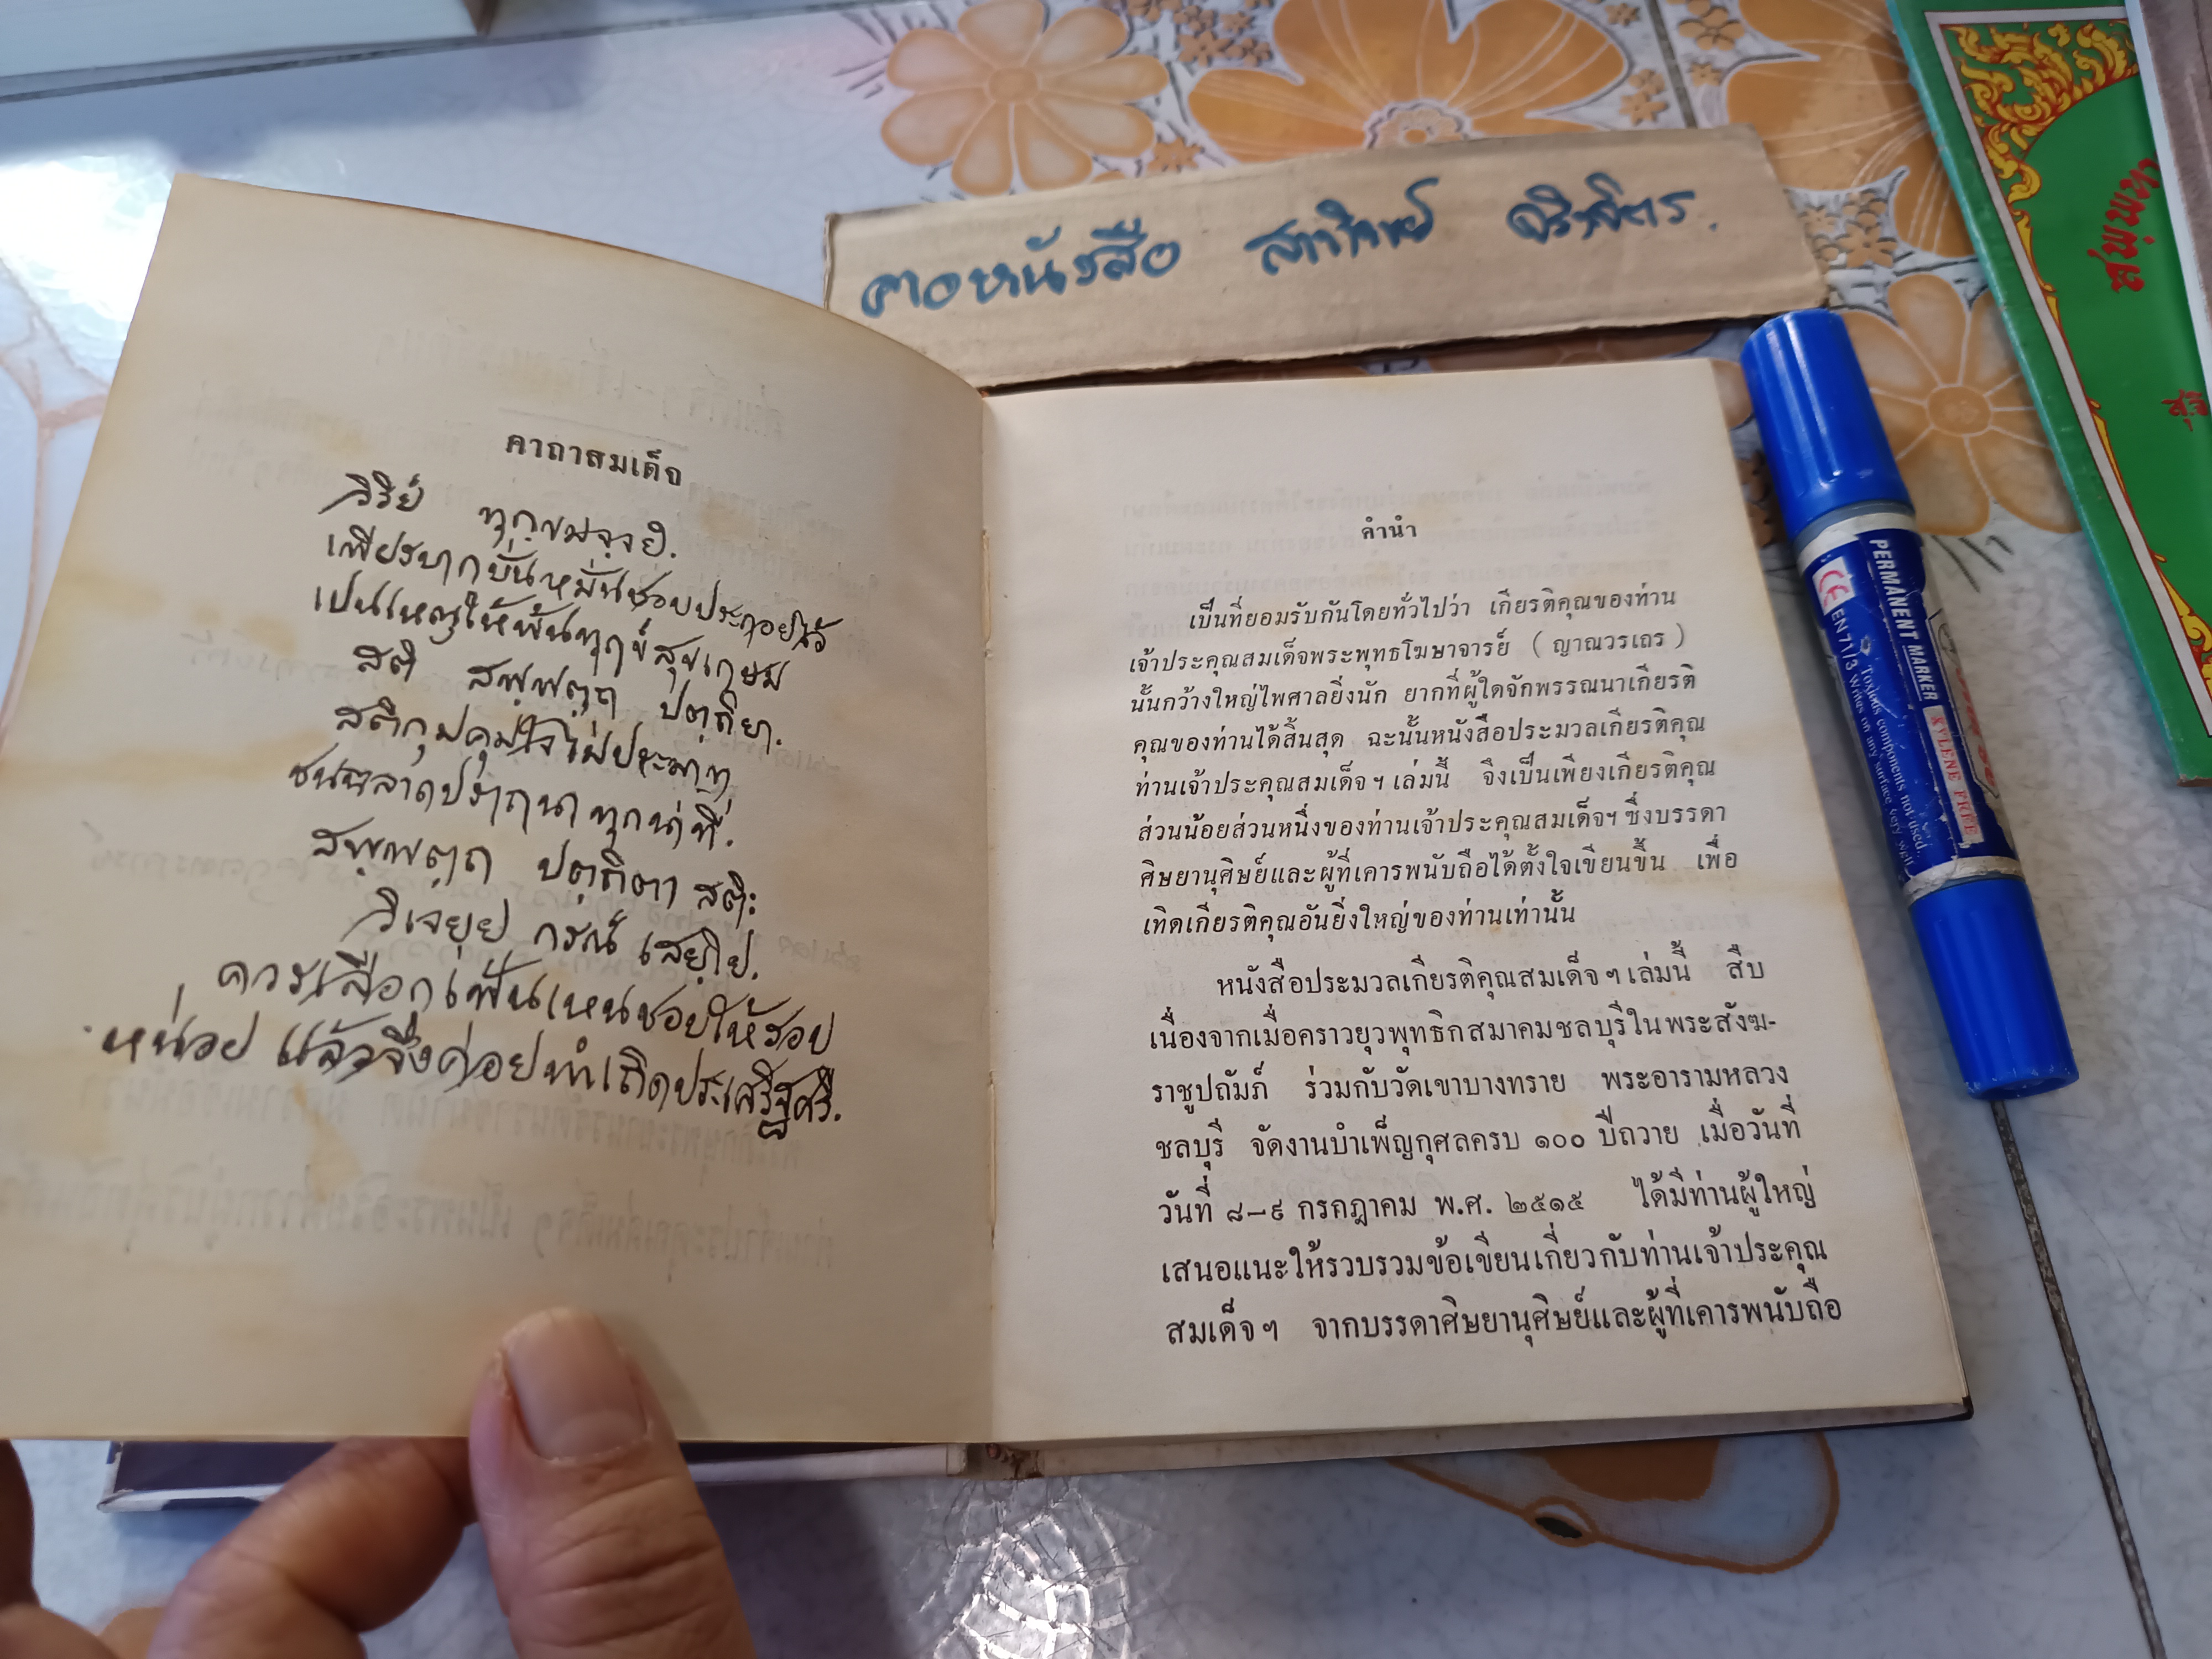 คาถาสมเด็จ
วิริยํ ทุกฺขมจฺจยิ.
เพียรบากบั่นหมั่นชอบประกอบไว้
เปนเหตุให้พ้นทุกข์สุขเกษม
สติ สพฺพตฺถ ปตฺถิยา.
สติกุมคุมใจไม่ประมาท
ชนฉลาดปรารถนาทุกน่าที่.
สพฺพตฺถ ปตฺถิตา สติ:
วิเจยฺย กรณํ เสยฺโย.
ควรเลือกเฟ้นเหนชอบให้รอบ
หน่อย แล้วจึ่งค่อยทำเถิดประเสริฐศรี.
คำนำ
เป็นที่ยอมรับกันโดยทั่วไปว่า เกียรติคุณของท่าน
เจ้าประคุณสมเด็จพระพุทธโฆษาจารย์ ( ญาณวรเถร )
นั้นกว้างใหญ่ไพศาลยิ่งนัก ยากที่ผู้ใดจักพรรณนาเกียรติ
คุณของท่านได้สิ้นสุด ฉะนั้นหนังสือประมวลเกียรติคุณ
ท่านเจ้าประคุณสมเด็จ ฯ เล่มนี้ จึงเป็นเพียงเกียรติคุณ
ส่วนน้อยส่วนหนึ่งของท่านเจ้าประคุณสมเด็จฯ ซึ่งบรรดา
ศิษยานุศิษย์และผู้ที่เคารพนับถือได้ตั้งใจเขียนขึ้น เพื่อ
เทิดเกียรติคุณอันยิ่งใหญ่ของท่านเท่านั้น
หนังสือประมวลเกียรติคุณสมเด็จ ฯ เล่มนี้ สืบ
เนื่องจากเมื่อคราวยุวพุทธิกสมาคมชลบุรีในพระสังฆ-
ราชูปถัมภ์ ร่วมกับวัดเขาบางทราย พระอารามหลวง
ชลบุรี จัดงานบำเพ็ญกุศลครบ ๑๐๐ ปีถวาย เมื่อวันที่
วันที่ ๘–๙ กรกฎาคม พ.ศ. ๒๕๑๕ ได้มีท่านผู้ใหญ่
เสนอแนะให้รวบรวมข้อเขียนเกี่ยวกับท่านเจ้าประคุณ
สมเด็จ ฯ จากบรรดาศิษยานุศิษย์และผู้ที่เคารพนับถือ
PERMANENT MARKER
XYLENE FREE
CE EN 71/3
Toxious components not used.
Writes on any surface very well
สมฺพุทฺ